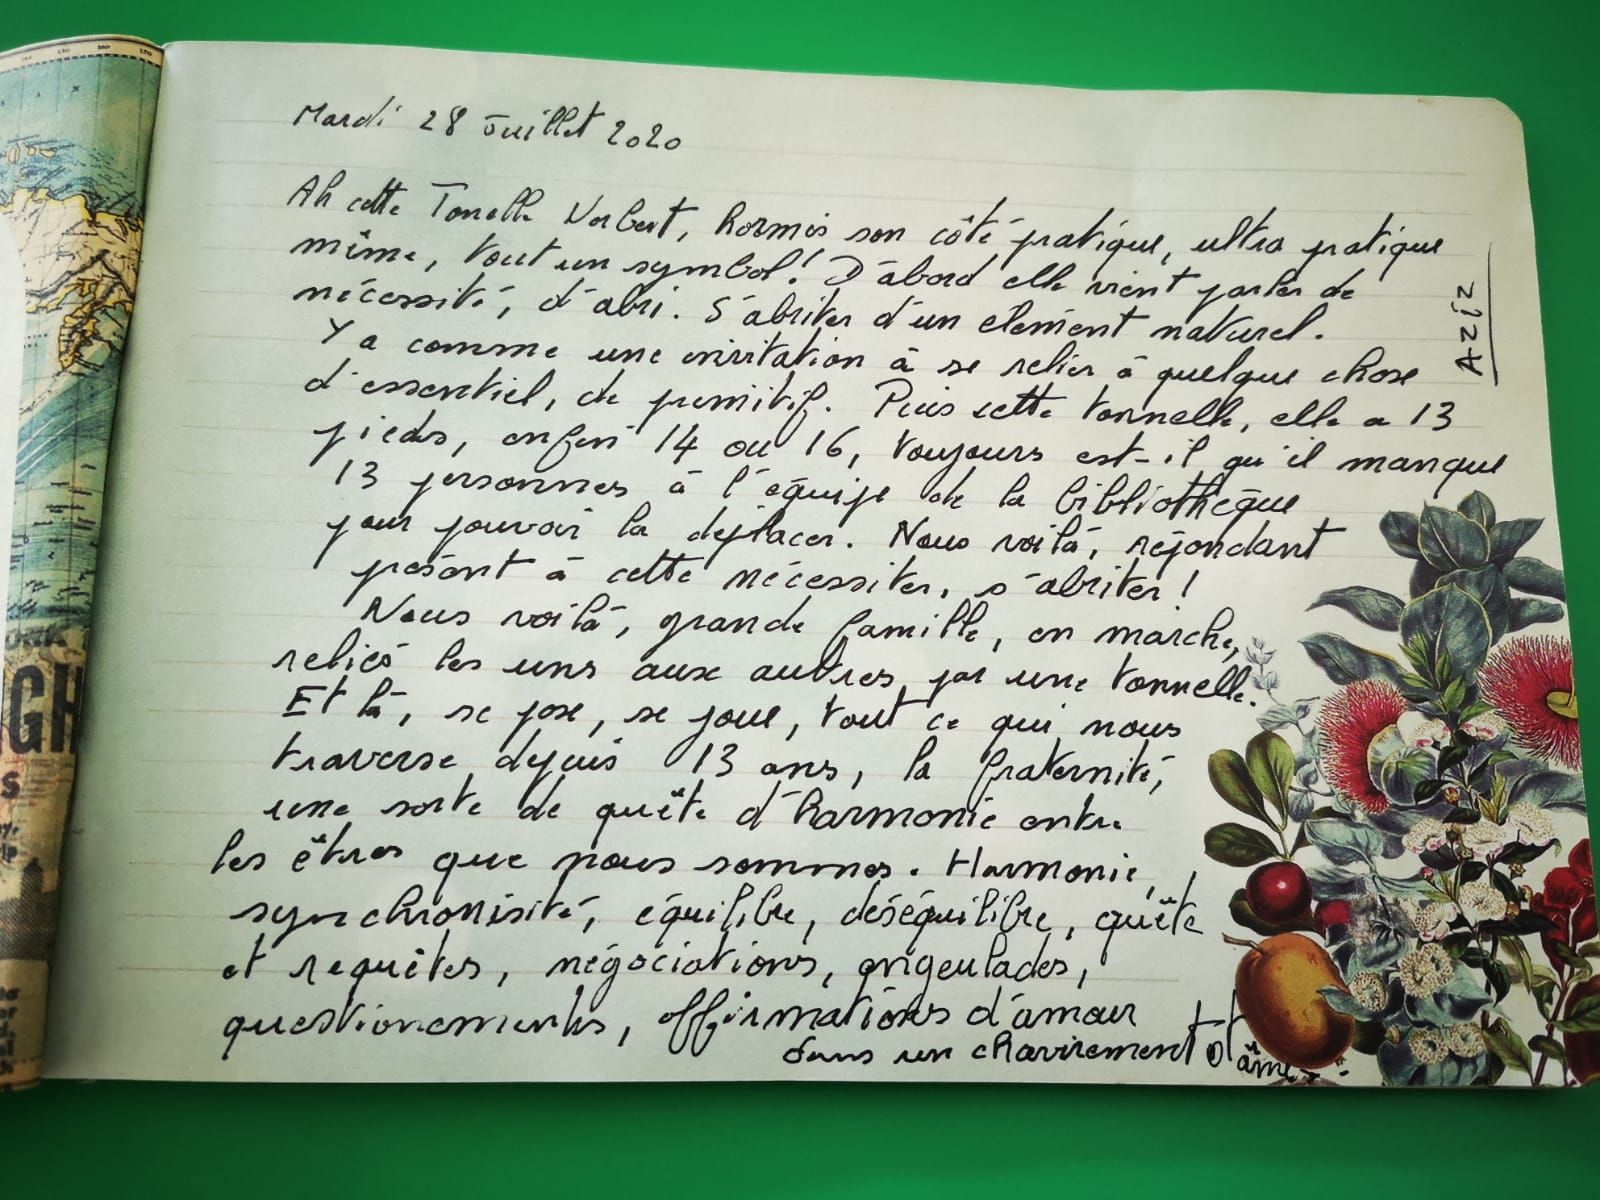 Mardi 28 Juillet 2020
Ah cette Tonelle Norbert, hormis son côté pratique, ultra pratique
même, tout un symbol! D'abord elle vient parler de
nécessité, d'abri. S'abriter d'un élément naturel.
Y a comme une invitation à se relier à quelque chose
d'essentiel, de primitif. Puis cette tonnelle, elle a 13
pieds, enfin 14 ou 16, toujours est-il qu'il manque
13 personnes à l'équipe de la bibliothèque
pour pouvoir la déplacer. Nous voilà, répondant
présent à cette nécessiter, s'abriter!
Nous voilà, grande famille, en marche,
reliés les uns aux autres par une tonnelle.
Et là, se pose, se joue, tout ce qui nous
traverse depuis 13 ans, la fraternité,
une sorte de quête d'harmonie entre
les êtres que nous sommes. Harmonie,
synchronisité, équilibre, déséquilibre, quête
et requêtes, négociations, engeulades,
questionements, affirmations d'amour
dans un chavirement d'âme...
Aziz
GH
S